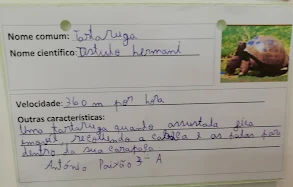 Nome comum: Tartaruga
Nome científico: Testudo hermani
Velocidade: 360 m por hora
Outras características:
Uma tartaruga quando assustada fica
imóvel, recolhendo a cabeça e as patas para
dentro da sua carapaça
António Paixão 3º A